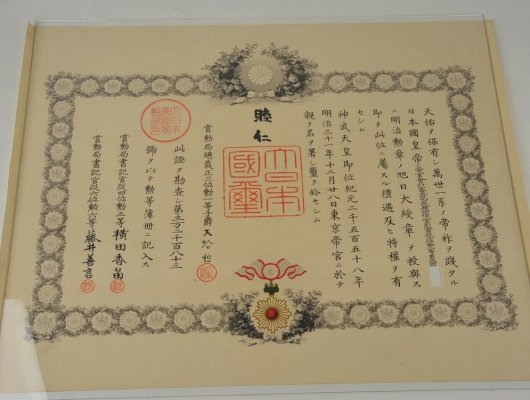 天佑ヲ保有シ萬世一系ノ帝祚ヲ踐タル
日本國皇帝
ニ明治勲章ノ旭日大綬章ヲ授與ス
即チ此位ニ屬スル禮遇及ヒ特權ヲ有
セシム
神武天皇即位紀元二千五百五十八年
明治三十一年十二月廿八日東京帝宮ニ於テ
親ラ名ヲ署シ璽ヲ鈐セシム
睦仁
大日本國璽
賞勲局總裁正三位勲一等子爵大給恒
此證ヲ勘査シ第 千百八十三
號ヲ以テ勲等簿冊ニ記入ス
賞勲局書記官從四位勲三等横田香苗
賞勲局書記官從六位勲六等藤井善言